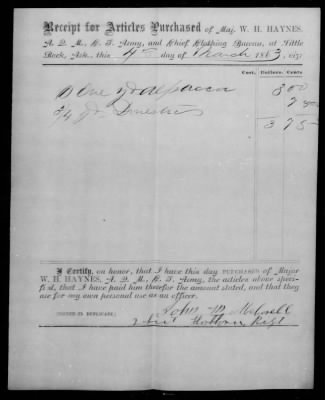 Receipt for Articles Purchased of Maj. W. H. HAYNES,
A. Q. M., C. S. Army, and Chief Clothing Bureau, at Little
Rock, Ark., this 4th day of March 1863, viz:
Cost. Dollars. Cents
One yd alpacca 3 00
3/4 yd Domestic 75
3 75
I Certify, on honor, that I have this day PURCHASED of Major
W. H. HAYNES, A. Q. M., C. S. Army, the articles above speci-
fied, that I have paid him therefor the amount stated, and that they
are for my own personal use as an officer.
John M
[SIGNED IN DUPLICATE.]
Regt